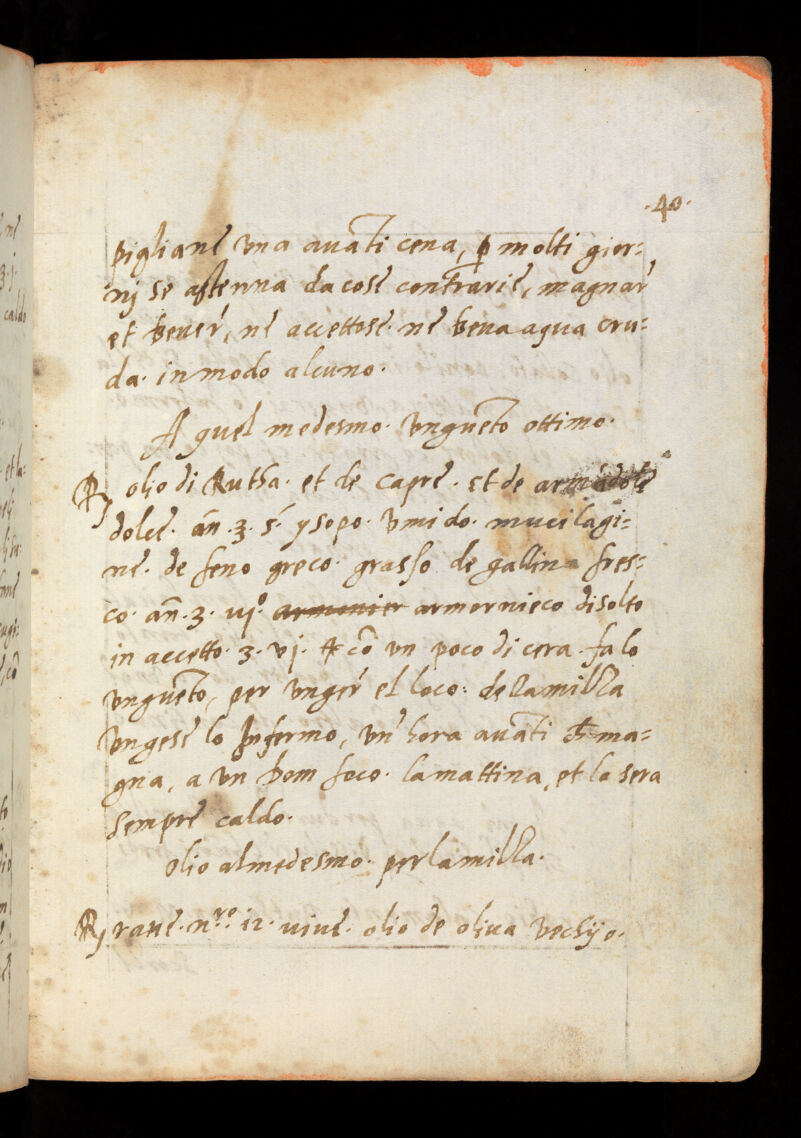 .40.
pigliane una auãti cena, ꝑ molti gior-
nj se astenna da cose contrarie, magnar
et bever, ne accettose. ne beua aqua cru-
da. in modo alcuno.
A quel medesmo. unguẽto ottimo.
℞ olio di Rutha. et de capre. et de armãdole
dolce. añ. ʒ. s. ysopo. umido. mucilagi-
ne. de feno greco. grasso de gallina fres-
co. añ. ʒ. vjº. armornieco disolto
in accetto. ʒ. vj. et cõ un poco di cera. fa lo
unguẽto, per unger el loco: de la milza
ungese lo Infermo, un' hora auãti cħ ma-
gna, a un bom foco. la mattina, et la sera
sempre caldo.
olio al medesmo. per la milza.
℞ rane. nro. 12. uiue. olio de oliua vechijo.